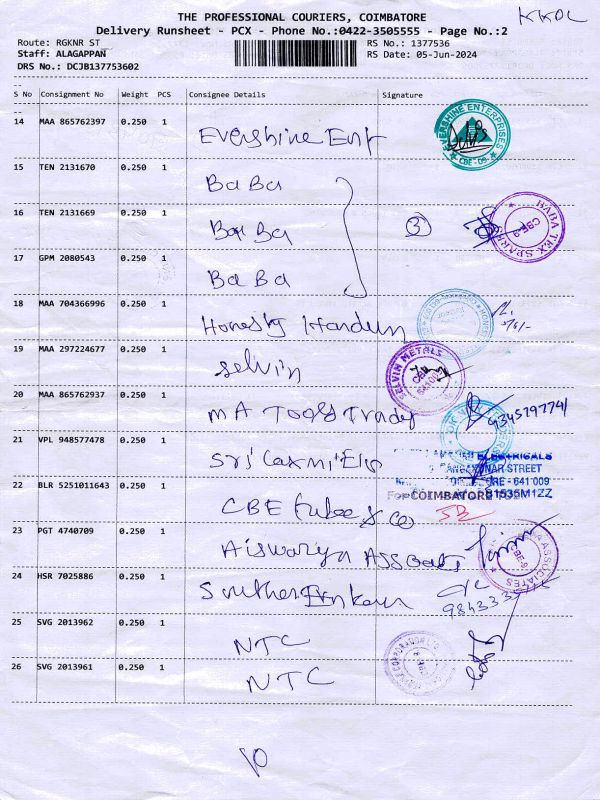 THE PROFESSIONAL COURIERS, COIMBATORE
KKDL
Delivery Runsheet - PCX - Phone No.:0422-3505555 - Page No.:2
Route: RGKNR ST RS No.: 1377536
Staff: ALAGAPPAN RS Date: 05-Jun-2024
DRS No.: DCJB137753602
S No Consignment No Weight PCS Consignee Details Signature
14 MAA 865762397 0.250 1 Evershine Ent
EVERSHINE ENTERPRISES CBE-09
15 TEN 2131670 0.250 1 BaBa
16 TEN 2131669 0.250 1 BaBa 3
BABA TEX SPARES CBE-9
17 GPM 2080543 0.250 1 BaBa
18 MAA 704366996 0.250 1 Honesty
19 MAA 297224677 0.250 1 Selvin
SELVIN METALS CBE
20 MAA 865762937 0.250 1 MA Tools Trady
21 VPL 948577478 0.250 1 Sri Laxmi Ele
ELECTRICALS
STREET
- 641 009
22 BLR 5251011643 0.250 1 CBE Tubee & Co
For COIMBATORE
23 PGT 4740709 0.250 1 Aiswarya
ASSOCIATES CBE-9
24 HSR 7025886 0.250 1 Southern
25 SVG 2013962 0.250 1 NTC
26 SVG 2013961 0.250 1 NTC